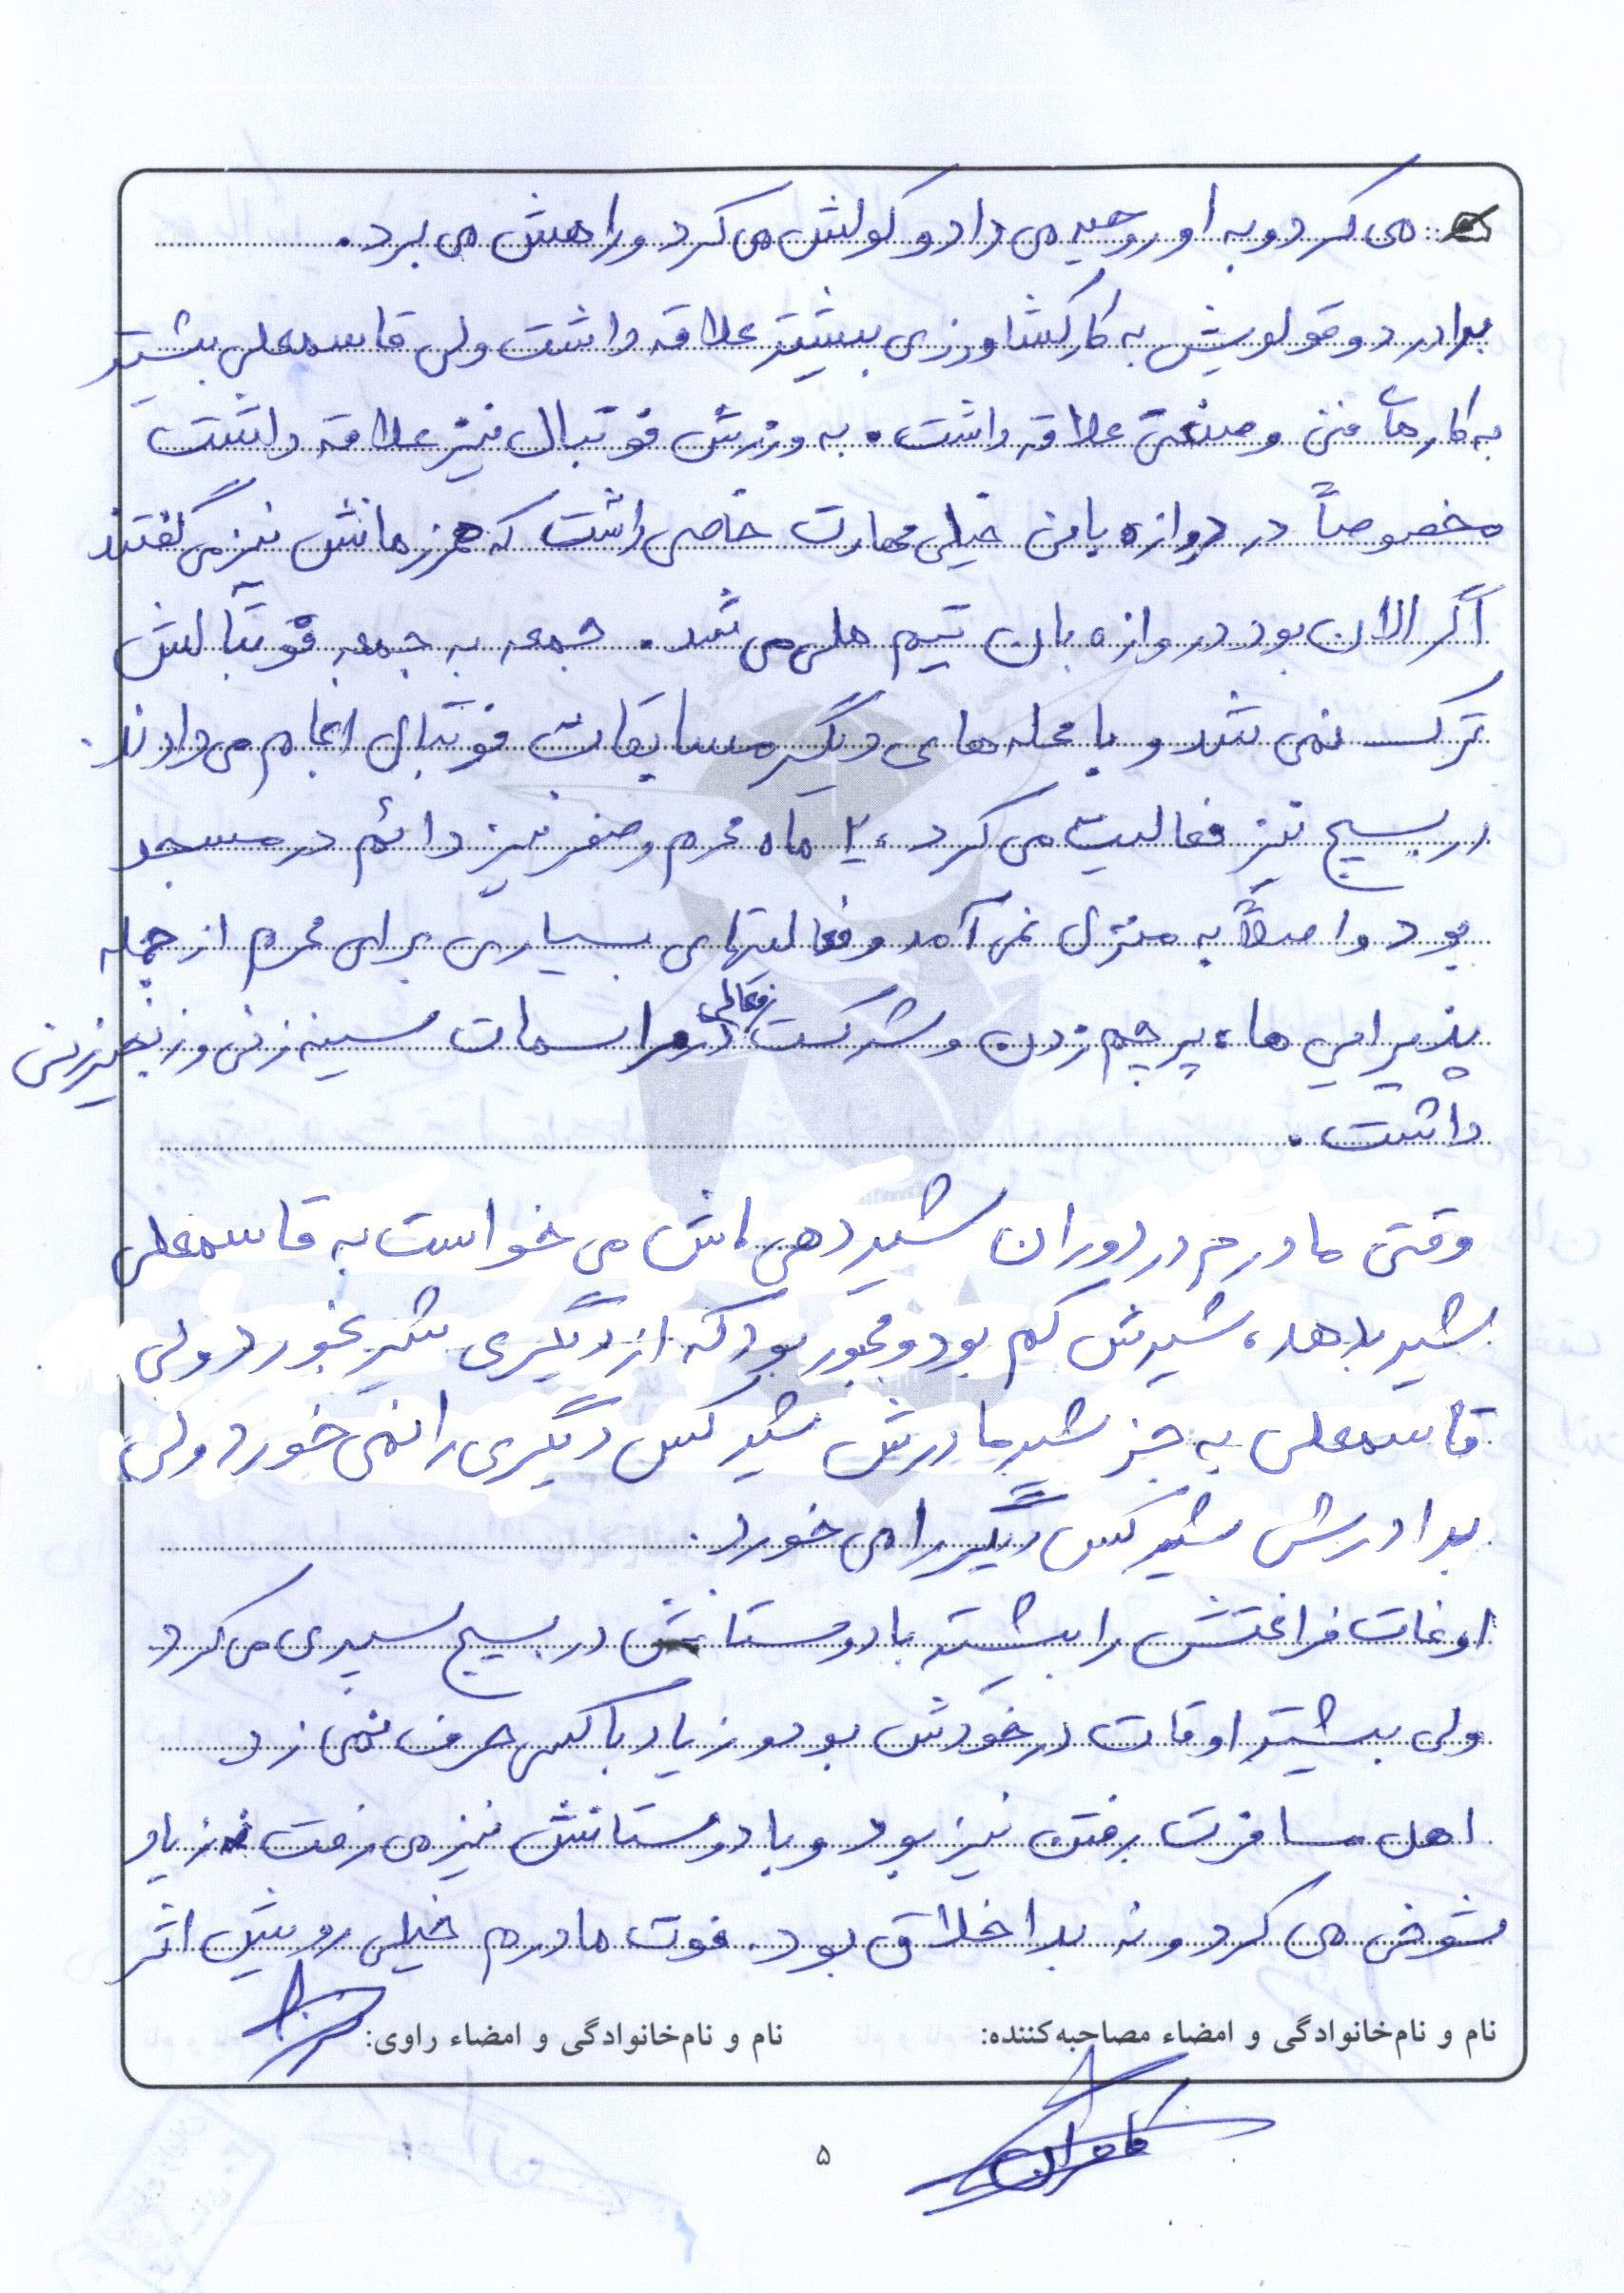 می کرد و به او روحیه می داد و کولش می کرد و راهش می برد.
برادر دوقولویش به کار کشاورزی بیشتر علاقه داشت ولی قاسمعلی بیشتر
به کارهای فنی و صنعتی علاقه داشت. به ورزش فوتبال نیز علاقه داشت
مخصوصاً در دروازه بانی خیلی مهارت خاصی داشت که همرزمانش نیز می گفتند
اگر الان بود دروازه بان تیم ملی می شد. جمعه به جمعه فوتبالش
ترک نمی شد و با محله های دیگر مسابقات فوتبال انجام می دادند.
در بسیج نیز فعالیت می کرد، ۲ ماه محرم و صفر نیز دائم در مسجد
بود و اصلاً به منزل نمی آمد و فعالیتهای بسیاری برای محرم از جمله
پذیرایی ها، پرچم زدن و شرکت فعالی در مراسمات سینه زنی و زنجیرزنی
داشت.
وقتی مادرم در دوران شیردهی اش می خواست به قاسمعلی
شیر بدهد، شیرش کم بود و مجبور بود که از دیگری شیر بخورد ولی
قاسمعلی به جز شیر مادرش شیر کس دیگری را نمی خورد ولی
برادرش شیر کس دیگر را می خورد.
اوغات فراغتش را بیشتر با دوستانش در بسیج سپری می کرد
ولی بیشتر اوقات در خودش بود و زیاد با کسی حرف نمی زد
اهل مسافرت رفتن نیز بود و با دوستانش نیز می رفت نه زیاد
شوخی می کرد و نه بداخلاق بود. فوت مادرم خیلی رویش اثر
نام و نام‌خانوادگی و امضاء مصاحبه‌کننده: نام و نام‌خانوادگی و امضاء راوی:
کامران
۵